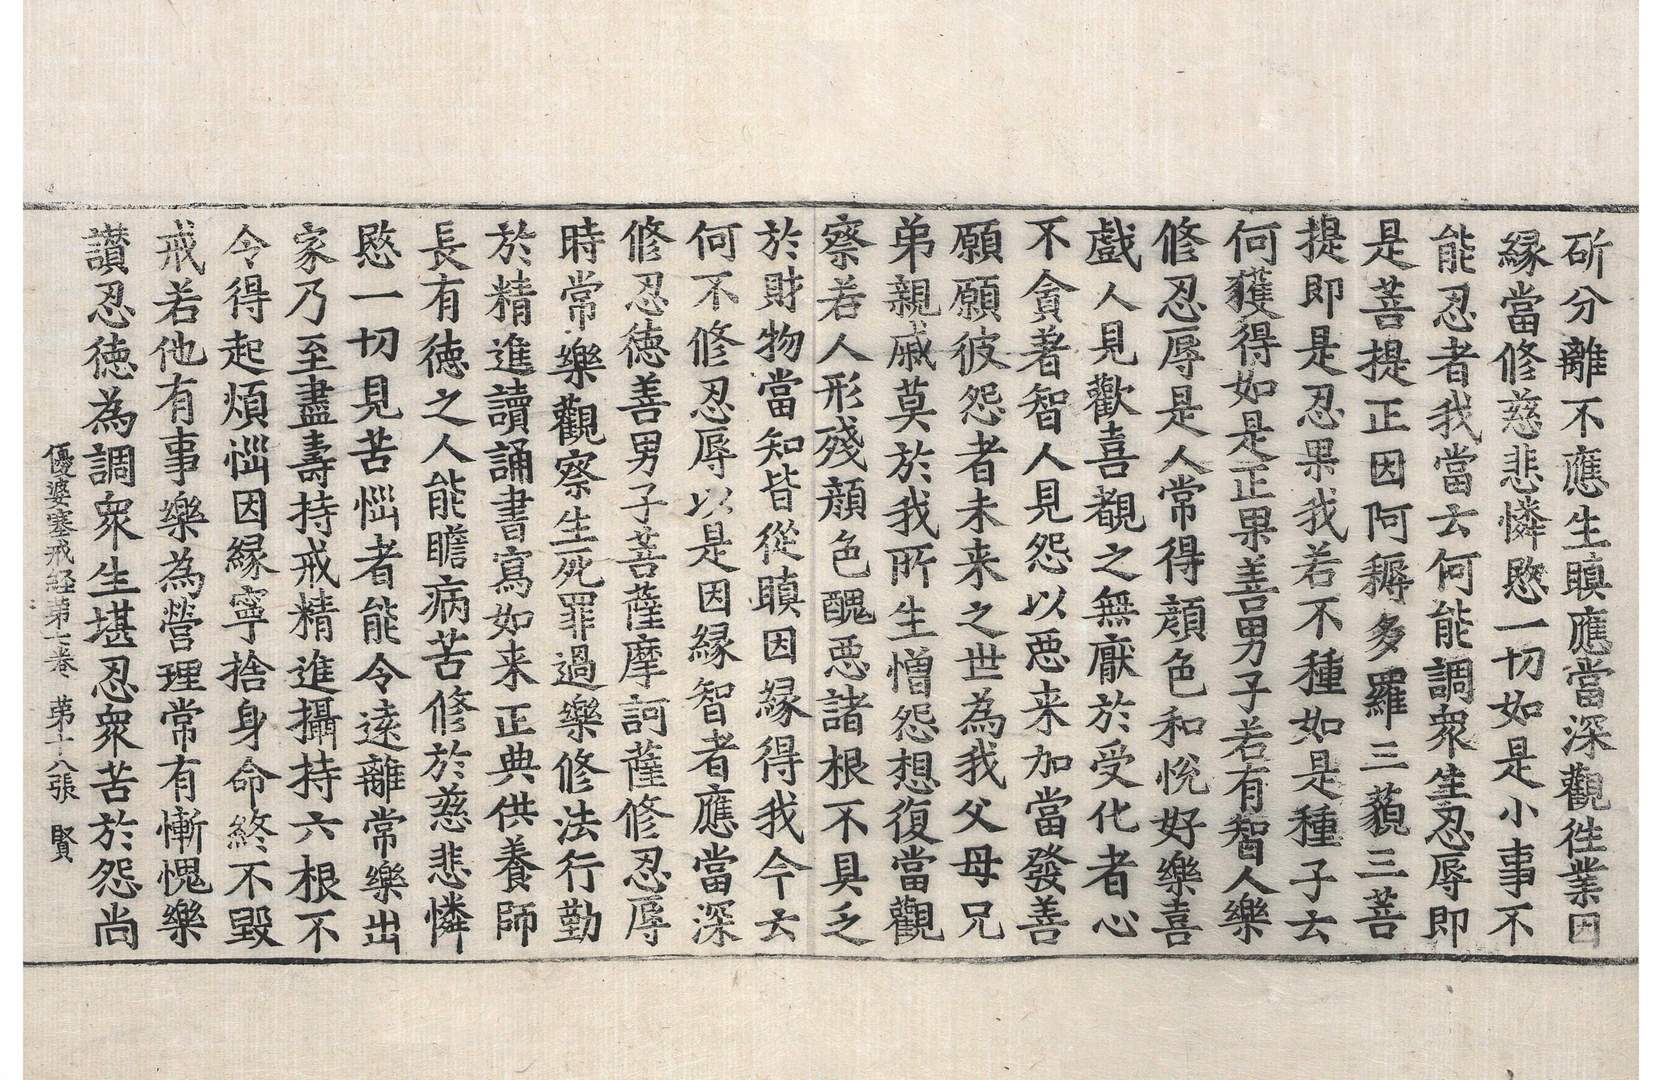 斫分離不應生瞋應當深觀徃業因
縁當修慈悲憐愍一切如是小事不
能忍者我當云何能調衆生忍辱即
是菩提正因阿耨多羅三藐三菩
提即是忍果我若不種如是種子云
何獲得如是正果善男子若有智人樂
修忍辱是人常得顔色和悅好樂喜
戲人見歡喜覩之無猒於受化者心
不貪著智人見怨以惡来加當發善
願願彼怨者未来之世為我父母兄
弟親戚莫於我所生憎怨想復當觀
察若人形殘顔色醜惡諸根不具乏
於財物當知皆從瞋因縁得我今云
何不修忍辱以是因縁智者應當深
修忍德善男子菩薩摩訶薩修忍辱
時常樂觀察生死罪過樂修法行勤
於精進讀誦書寫如来正典供養師
長有德之人能瞻病苦修於慈悲憐
愍一切見苦惱者能令遠離常樂出
家乃至盡壽持戒精進攝持六根不
令得起煩惱因縁寧捨身命終不毀
戒若他有事樂為營理常有慚愧樂
讃忍德為調衆生堪忍衆苦於怨尚
優婆塞戒経第七卷 第十八張 賢